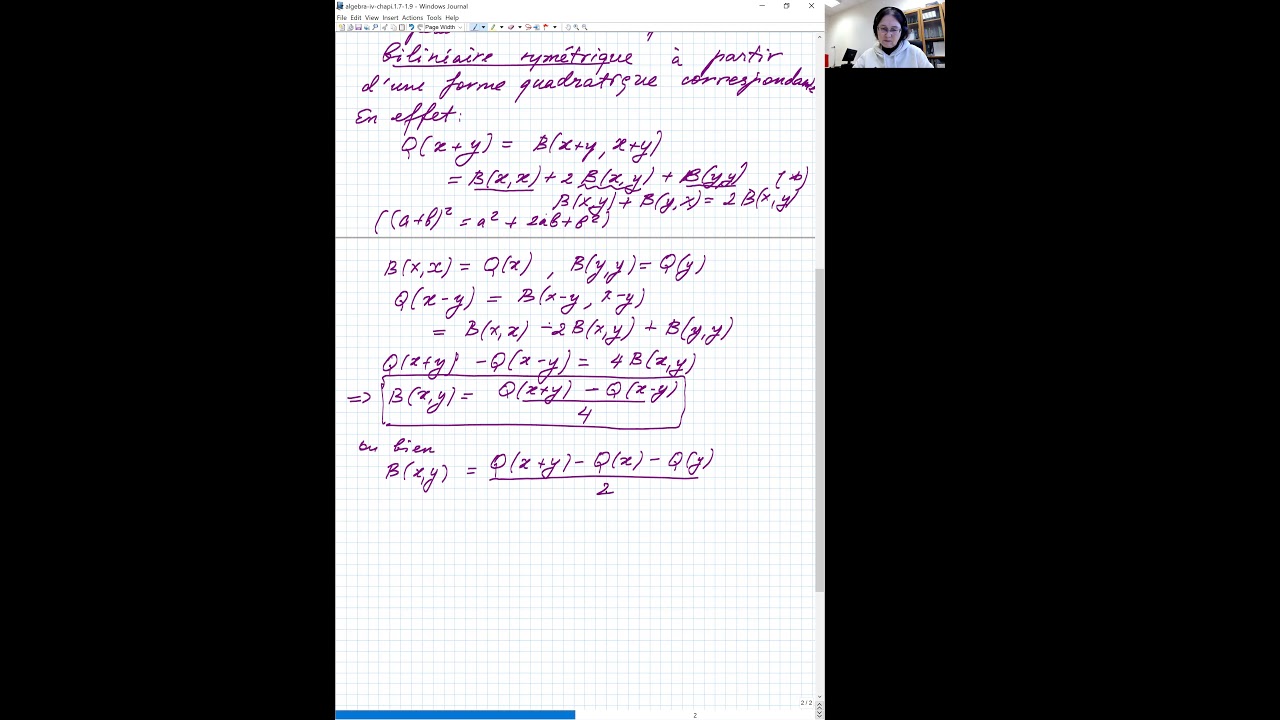 algebra-iv-chapi.1.7-1.9 - Windows Journal
File Edit View Insert Actions Tools Help
Page Width
bilinéaire symétrique à partir
d'une forme quadratique correspondante
En effet:
Q(x+y) = B(x+y, x+y)
= B(x,x) + 2 B(x,y) + B(y,y) (*)
B(x,y) + B(y,x) = 2 B(x,y)
((a+b)² = a² + 2ab + b²)
B(x,x) = Q(x) , B(y,y) = Q(y)
Q(x-y) = B(x-y, x-y)
= B(x,x) -2B(x,y) + B(y,y)
Q(x+y) - Q(x-y) = 4 B(x,y)
=> B(x,y) = Q(x+y) - Q(x-y)
4
ou bien
B(x,y) = Q(x+y) - Q(x) - Q(y)
2
2/2
2